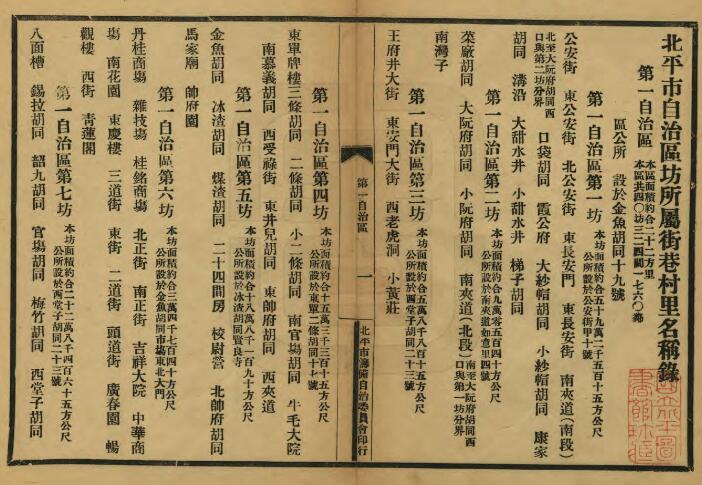 北平市自治區坊所屬街巷村里名稱錄
第一自治區 本區面積約合二十二方里
本區共四〇坊三二四閭一七六〇鄰
區公所 設於金魚胡同十九號
第一自治區第一坊 本坊面積約合五十九萬二千五百十五方公尺
公所設於公安街甲十號
公安街 東公安街 北公安街 東長安門 東長安街 南夾道(南段)
北至大阮府胡同西
口與第二坊分界 口袋胡同 霞公府 大紗帽胡同 小紗帽胡同 康家
胡同 溝沿 大甜水井 小甜水井 梯子胡同
第一自治區第二坊 本坊面積約合九萬零五百四十方公尺
公所設於南夾道如意里四號
菜廠胡同 大阮府胡同 小阮府胡同 南夾道(北段) 南至大阮府胡同西
口與第一坊分界
南灣子
第一自治區第三坊 本坊面積約合五萬八千八百二十五方公尺
公所設於西堂子胡同二十三號
王府井大街 東安門大街 西老虎洞 小黃莊
第一自治區
一
北平市籌備自治委員會印行
第一自治區第四坊 本坊面積約合十五萬三千三百五十五方公尺
公所設於東單二條胡同十七號
東單牌樓三條胡同 二條胡同 小二條胡同 南官場胡同 牛毛大院
南慕義胡同 西受祿街 東井兒胡同 東帥府胡同 西夾道
第一自治區第五坊 本坊面積約合十八萬八千一百九十方公尺
公所設於冰渣胡同賢良寺
金魚胡同 冰渣胡同 煤渣胡同 二十四間房 校尉營 北帥府胡同
馬家廟 帥府園
第一自治區第六坊 本坊面積約合三萬四千七百四十方公尺
公所設於金魚胡同市場東北大門
丹桂商場 雜技場 桂銘商場 北正街 南正街 吉祥大院 中華商
場 南花園 東慶樓 三道街 東街 二道街 頭道街 廣春園 暢
觀樓 西街 青蓮閣
第一自治區第七坊 本坊面積約合二十二萬八千四百六十五方公尺
公所設於西堂子胡同二十三號
八面槽 錫拉胡同 韶九胡同 官場胡同 梅竹胡同 西堂子胡同